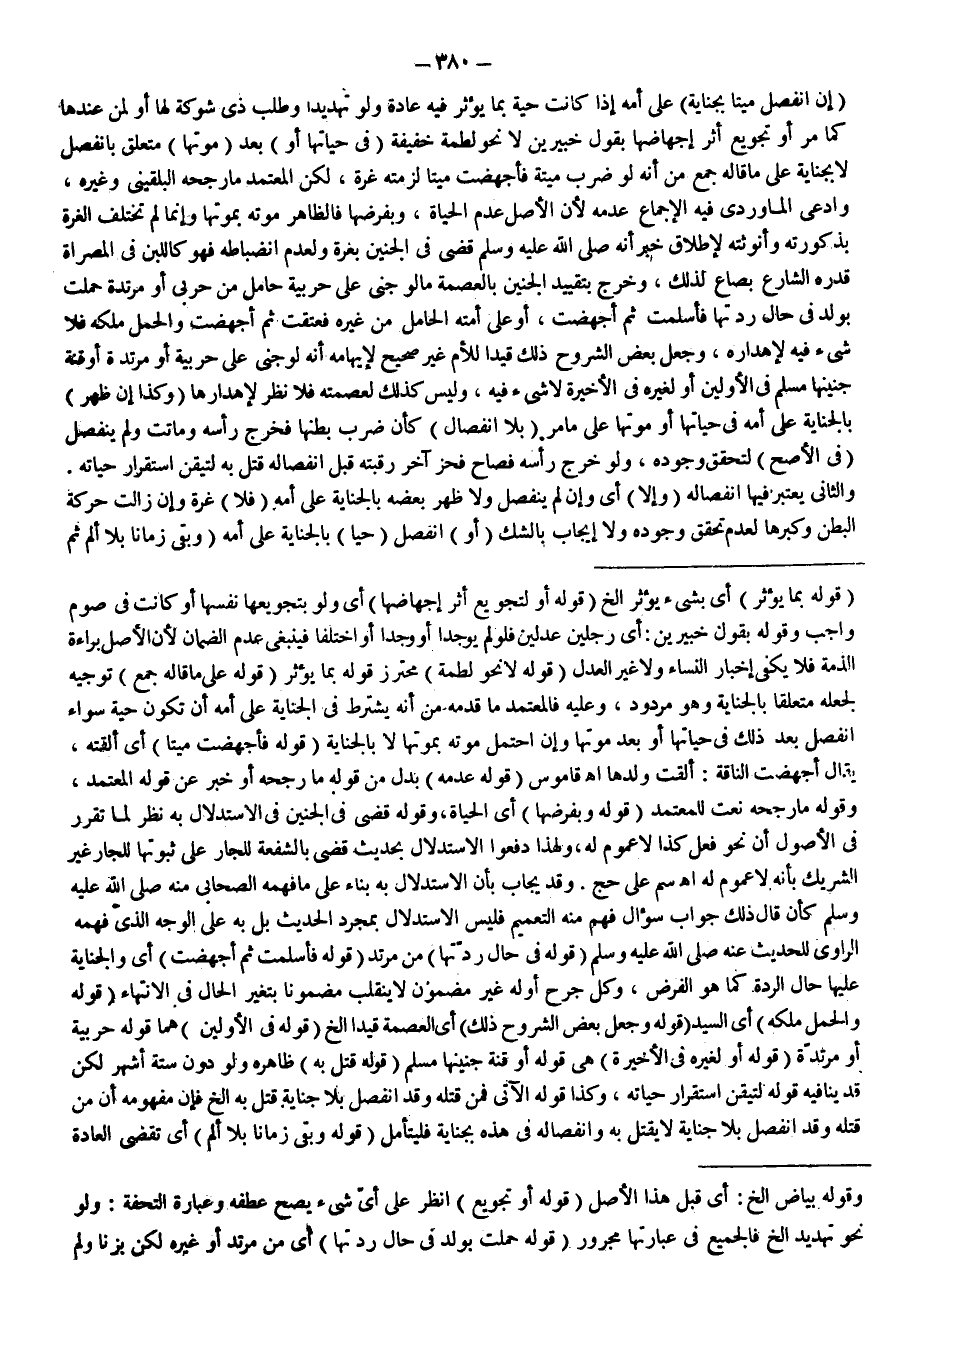 — ٣٨٠ —
( إن انفصل ميتا بجناية) على أمه إذا كانت حية بما يؤثر فيه عادة ولو تهديدا وطلب ذى شوكة لها أو لمن عندها
كما مر أو تجويع أثر إجهاضها بقول خبيرين لا نحو لطمة خفيفة ( فى حياتها أو ) بعد ( موتها ) متعلق بانفصل
لابجناية على ماقاله جمع من أنه لو ضرب ميتة فأجهضت ميتا لزمته غرة ، لكن المعتمد مارجحه البلقينى وغيره ،
وادعى الماوردى فيه الإجماع عدمه لأن الأصل عدم الحياة ، وبفرضها فالظاهر موته بموتها وإنما لم تختلف الغرة
بذكورته وأنوثته لإطلاق خبر أنه صلى الله عليه وسلم قضى فى الجنين بغرة ولعدم انضباطه فهو كاللبن فى المصراة
قدره الشارع بصاع لذلك ، وخرج بتقييد الجنين بالعصمة مالو جنى على حربية حامل من حربى أو مرتدة حملت
بولد فى حال ردتها فأسلمت ثم أجهضت ، أو على أمته الحامل من غيره فعتقت ثم أجهضت والحمل ملكه فلا
شىء فيه لإهداره ، وجعل بعض الشروح ذلك قيدا للأم غير صحيح لإيهامه أنه لو جنى على حربية أو مرتدة أو قنة
جنينها مسلم فى الأولين أو لغيره فى الأخيرة لاشىء فيه ، وليس كذلك لعصمته فلا نظر لإهدارها ( وكذا إن ظهر )
بالجناية على أمه فى حياتها أو موتها على مامر ( بلا انفصال ) كأن ضرب بطنها فخرج رأسه وماتت ولم ينفصل
( فى الأصح ) لتحقق وجوده ، ولو خرج رأسه فصاح فحز آخر رقبته قبل انفصاله قتل به لتيقن استقرار حياته .
والثانى يعتبر فيها انفصاله ( وإلا ) أى وإن لم ينفصل ولا ظهر بعضه بالجناية على أمه ( فلا ) غرة وإن زالت حركة
البطن وكبرها لعدم تحقق وجوده ولا إيجاب بالشك ( أو ) انفصل ( حيا ) بالجناية على أمه ( وبقى زمانا بلا ألم ثم
( قوله بما يؤثر ) أى بشىء يؤثر الخ ( قوله أو لتجويع أثر إجهاضها) أى ولو بتجويعها نفسها أو كانت فى صوم
واجب وقوله بقول خبيرين : أى رجلين عدلين فلو لم يوجدا أو وجدا أو اختلفا فينبغى عدم الضمان لأن الأصل براءة
الذمة فلا يكفى إخبار النساء ولاغير العدل ( قوله لانحو لطمة ) محترز قوله بما يؤثر ( قوله على ماقاله جمع ) توجيه
لجعله متعلقا بالجناية وهو مردود ، وعليه فالمعتمد ما قدمه من أنه يشترط فى الجناية على أمه أن تكون حية سواء
انفصل بعد ذلك فى حياتها أو بعد موتها وإن احتمل موته بموتها لا بالجناية ( قوله فأجهضت ميتا ) أى ألقته ،
يقال أجهضت الناقة : ألقت ولدها اه قاموس ( قوله عدمه ) بدل من قوله ما رجحه أو خبر عن قوله المعتمد ،
وقوله مارجحه نعت للمعتمد ( قوله وبفرضها ) أى الحياة ، وقوله قضى فى الجنين فى الاستدلال به نظر لما تقرر
فى الأصول أن نحو فعل كذا لاعموم له ، ولهذا دفعوا الاستدلال بحديث قضى بالشفعة للجار على ثبوتها للجار غير
الشريك بأنه لاعموم له اه سم على حج . وقد يجاب بأن الاستدلال به بناء على مافهمه الصحابى منه صلى الله عليه
وسلم كأن قال ذلك جواب سؤال فهم منه التعميم فليس الاستدلال بمجرد الحديث بل به على الوجه الذىّ فهمه
الراوى للحديث عنه صلى الله عليه وسلم ( قوله فى حال ردّتها ) من مرتد ( قوله فأسلمت ثم أجهضت ) أى والجناية
عليها حال الردة كما هو الفرض ، وكل جرح أوله غير مضمون لاينقلب مضمونا بتغير الحال فى الانتهاء ( قوله
والحمل ملكه ) أى السيد (قوله وجعل بعض الشروح ذلك) أى العصمة قيدا الخ ( قوله فى الأولين ) هما قوله حربية
أو مرتدّة ( قوله أو لغيره فى الأخيرة ) هى قوله أو قنة جنينها مسلم ( قوله قتل به ) ظاهره ولو دون ستة أشهر لكن
قد ينافيه قوله لتيقن استقرار حياته ، وكذا قوله الآتى فمن قتله وقد انفصل بلا جناية قتل به الخ فإن مفهومه أن من
قتله وقد انفصل بلا جناية لايقتل به وانفصاله فى هذه بجناية فليتأمل ( قوله وبقى زمانا بلا ألم ) أى تقضى العادة
وقوله بياض الخ : أى قبل هذا الأصل ( قوله أو تجويع ) انظر على أىّ شىء يصح عطفه وعبارة التحفة : ولو
نحو تهديد الخ فالجميع فى عبارتها مجرور ( قوله حملت بولد فى حال ردتها ) أى من مرتد أو غيره لكن بزنا ولم